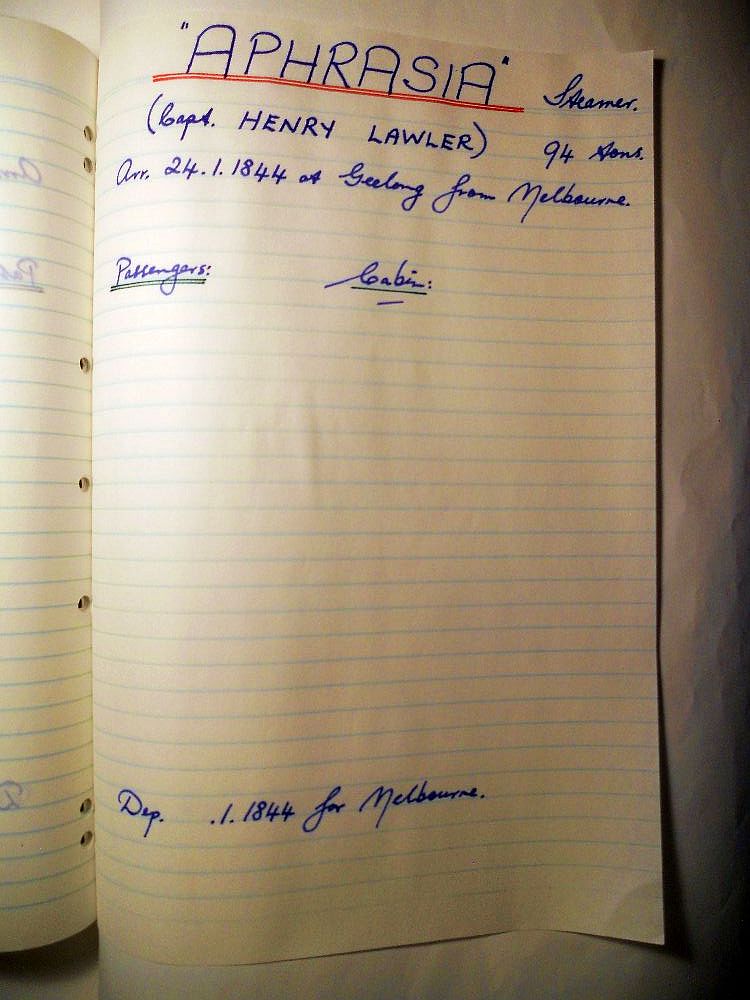 "APHRASIA" Steamer.
(Capt. HENRY LAWLER) 94 tons.
Arr. 24.1.1844 at Geelong from Melbourne.
Passengers: Cabin:
Dep. .1.1844 for Melbourne.